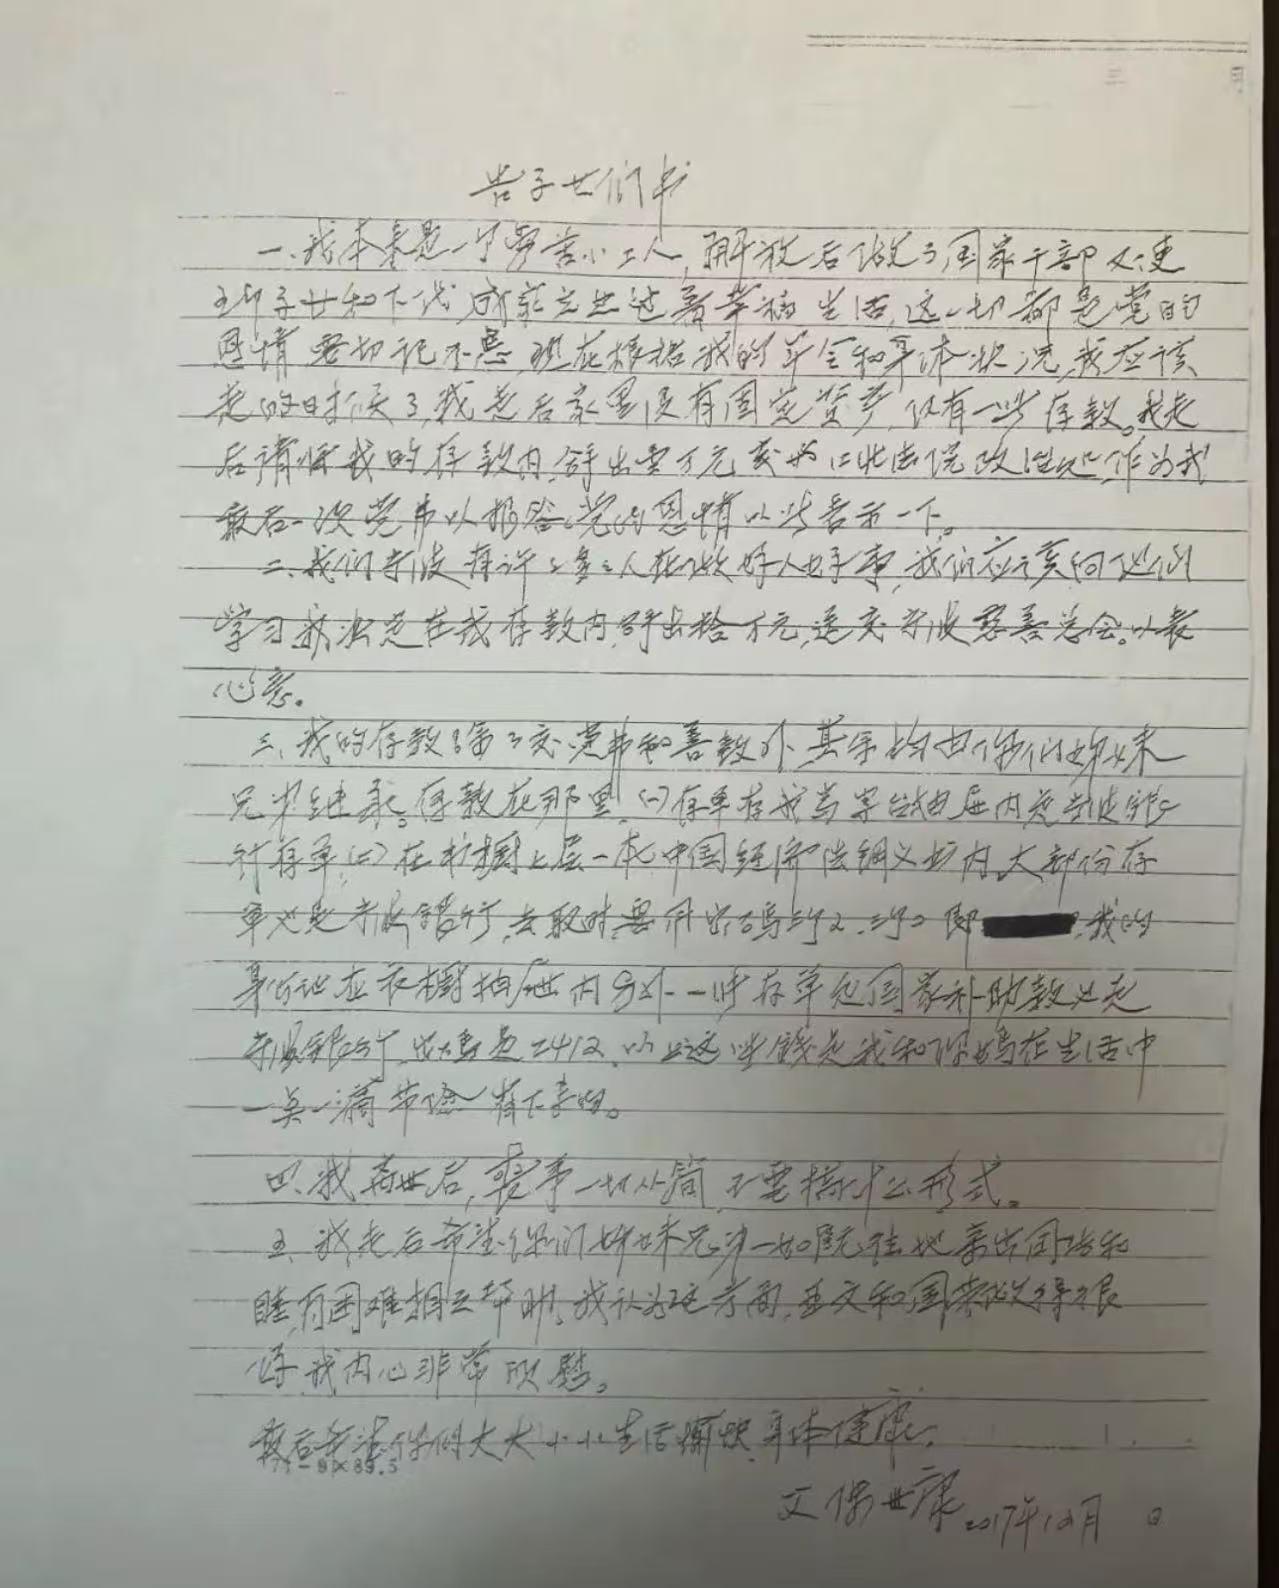 三 月
告子女们书
一、我本来是一个劳苦小工人,解放后做了国家干部又使
子女和下代成家立业过着幸福生活,这一切都是党的
恩情要切记不忘,现在根据我的年令和身体状况,我应该
走的时候了,我走后家里没有固定资产,仅有一些存款。我走
后请将我的存款内,拿出壹万元交给江北法院政治处,作为我
最后一次党费以报答党的恩情以此表示一下。
二、我们宁波有许许多多人在做好人好事,我们应该向他们
学习,我决定在我存款内,拿出拾万元,送交宁波慈善总会。以表
心意。
三、我的存款除了交党费和善款外,其余均由你们姊妹
兄弟继承。存款在那里,(一)存单存我写字台抽屉内是宁波银
行存单,(二)在书橱上层一本中国经济法纲义书内,大部份存
单又是宁波银行,去取时要用密码 即 我的
身份证在衣橱抽屉内另外一些存单包国家补助款又是
宁波银行,密码是2412,以上这些钱是我和你妈在生活中
一点一滴节俭省下来的。
四、我离世后,丧事一切从简,不要搞什么形式。
五、我走后希望你们姊妹兄弟一如既往地亲密团结和
睦,有困难相互帮助,我认为这方面,亚文和国荣做得很
好,我内心非常欣慰。
最后希望你们大大小小生活愉快,身体健康。
71-8×89.5
父 保世康 2017年10月 日